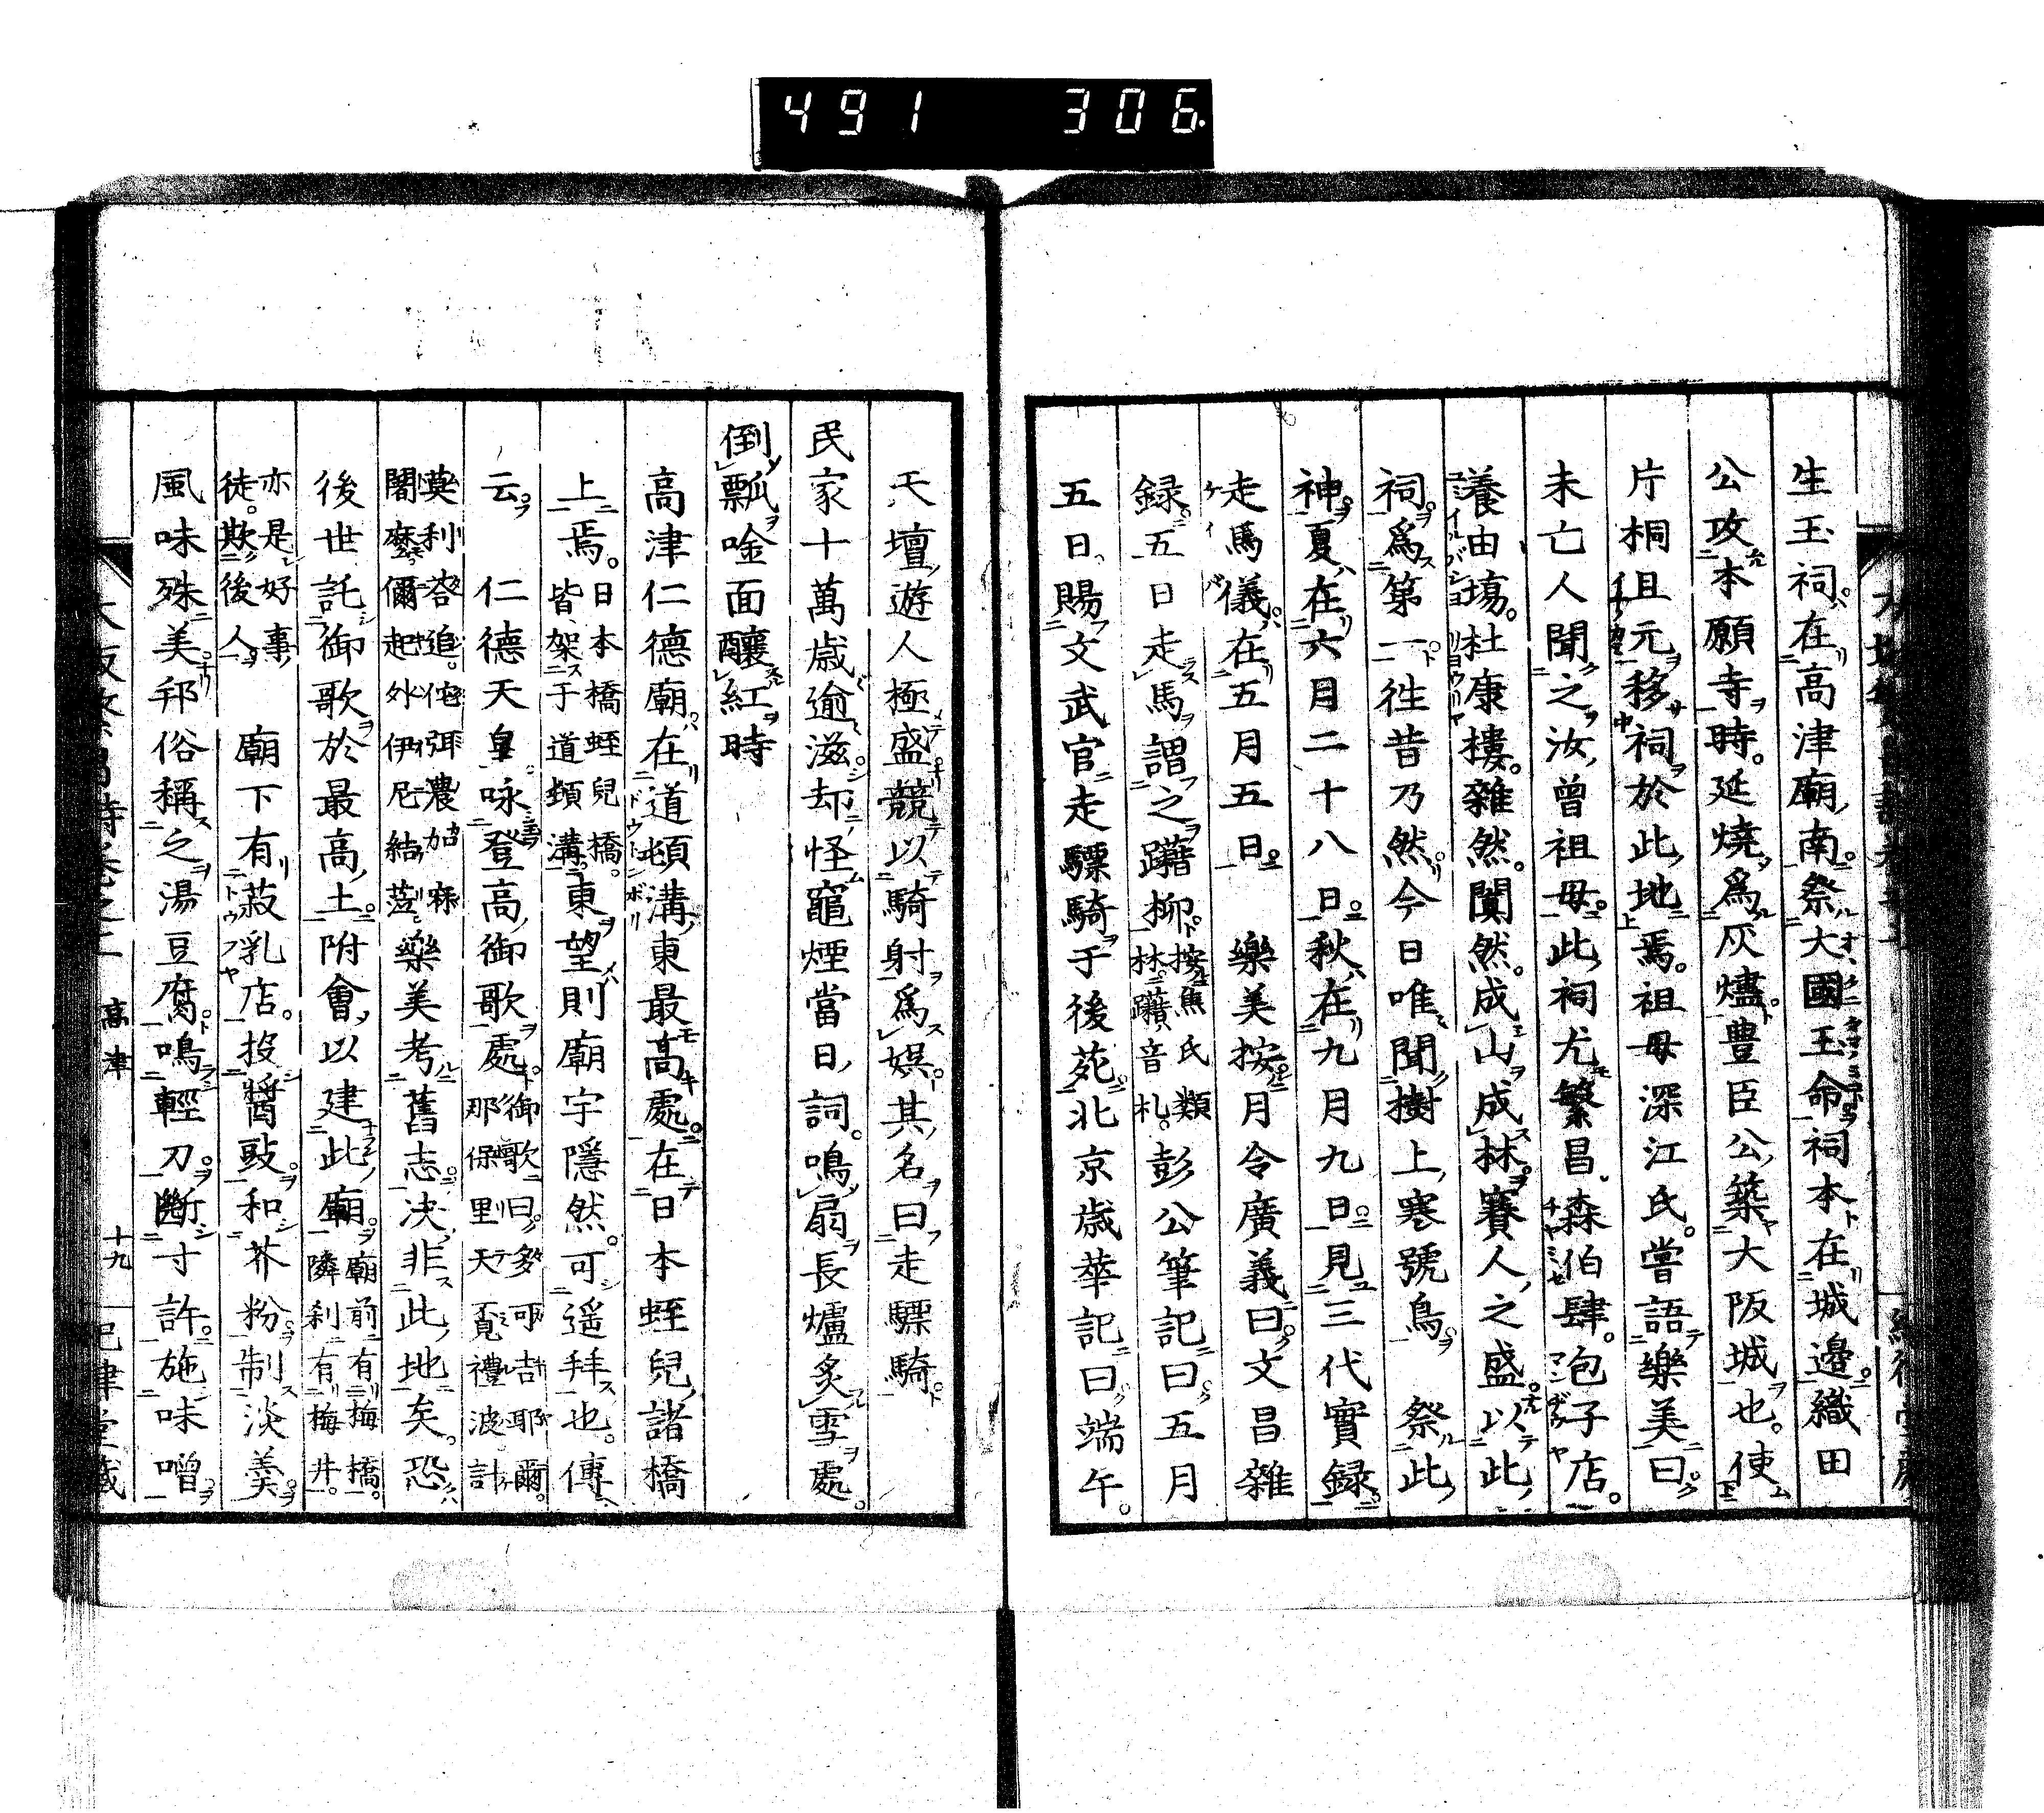 491 306
生玉祠。在高津廟南。祭大國玉命。祠本在城邊。織田
公攻本願寺時。延燒爲灰燼。豊臣公築大阪城也。使
片桐且元移祠於此地焉。祖母深江氏。嘗語樂美曰
未亡人聞之汝曾祖母。此祠尤繁昌。森伯肆。包子店。
養由場。杜康樓。雜然。闐然。成山成林。賽人之盛。以此
祠。爲第一。徃昔乃然。今日唯聞樹上寒號鳥。 祭此
神。夏在六月二十八日。秋在九月九日。見三代實録
走馬儀。在五月五日。 樂美按。月令廣義曰。文昌雜
録。五日走馬。謂之躤柳。按焦氏類林。躤音札。彭公筆記曰。五月
五日。賜文武官走驃騎于後苑。北京歲華記曰。端午。
天壇遊人極盛。競以騎射爲娯。其名曰走驃騎。
民家十萬歳逾滋却怪竈煙當日詞。鳴扇長爐炙雪處。
倒瓢唫面釀紅時
高津仁德廟。在道頓溝東最高處。在日本蛭兒諸橋
上焉。日本橋蛭兒橋。皆架于道頓溝。東望則廟宇隱然。可遥拜也。傳
云。 仁德天皇咏登高御歌處。御歌曰。多可吉耶爾。那保里天覔禮波計
莫利荅追。侘弭濃加麻闇麼爾起外伊尼結蓙 樂美考舊志。決非此地矣。恐
後世託御歌於最高土附會。以建此廟。廟前有梅橋。隣刹有梅井。
亦是好事徒。欺後人。 廟下有菽乳店。投醬豉。和芥粉。制淡羹。
風味殊美。邦俗稱之湯豆腐。鳴輕刀。斷寸許。施味噌
高津 十九